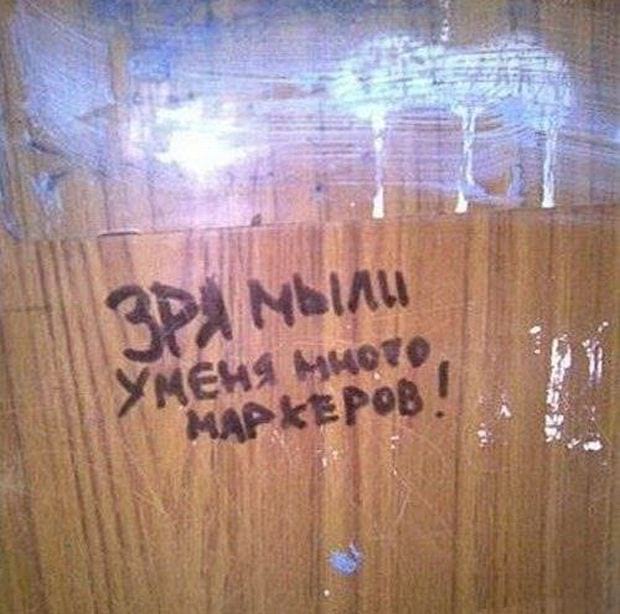 ЗРЯ МЫЛИ
У МЕНЯ МНОГО
МАРКЕРОВ!